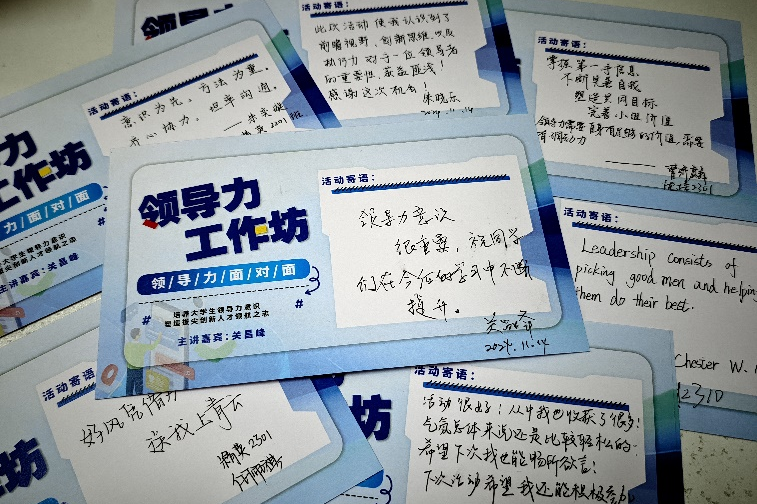 活动寄语：
意识为先，方法为重。
齐心协力，坦率沟通。
活动寄语：
此次活动使我认识到了
前瞻视野、创新思维、以及
执行力对于一位领导者
的重要性，获益匪浅！
感谢这次机会！
2024.11.14
活动寄语：
掌握第一手信息
不断完善自我
塑造共同目标
完善小组价值
领导力需要自身有足够的价值，需要
有驱动力
2301
领导力
工作坊
领/导/力/面/对/面
# 培养大学生领导力意识
塑造拔尖创新人才领航之志 #
主讲嘉宾：关昌峰
活动寄语：
领导力意识
很重要，祝同学
们在今后的学习中不断
提升。
关昌峰
2024.11.14
力
工作坊
力/面/对/面
养大学生领导力意识
拔尖创新人才领航之志
主讲嘉宾：关昌峰
活动寄语：
Leadership consists of
picking good men and helping
them do their best.
Chester W.
2310
活动寄语：
好风凭借力
送我上青云
2301
活动寄语：
活动很好！从中我也收获了很多！
气氛总体来说还是比较轻松的
希望下次我也能畅所欲言！
下次活动希望我还能积极参加